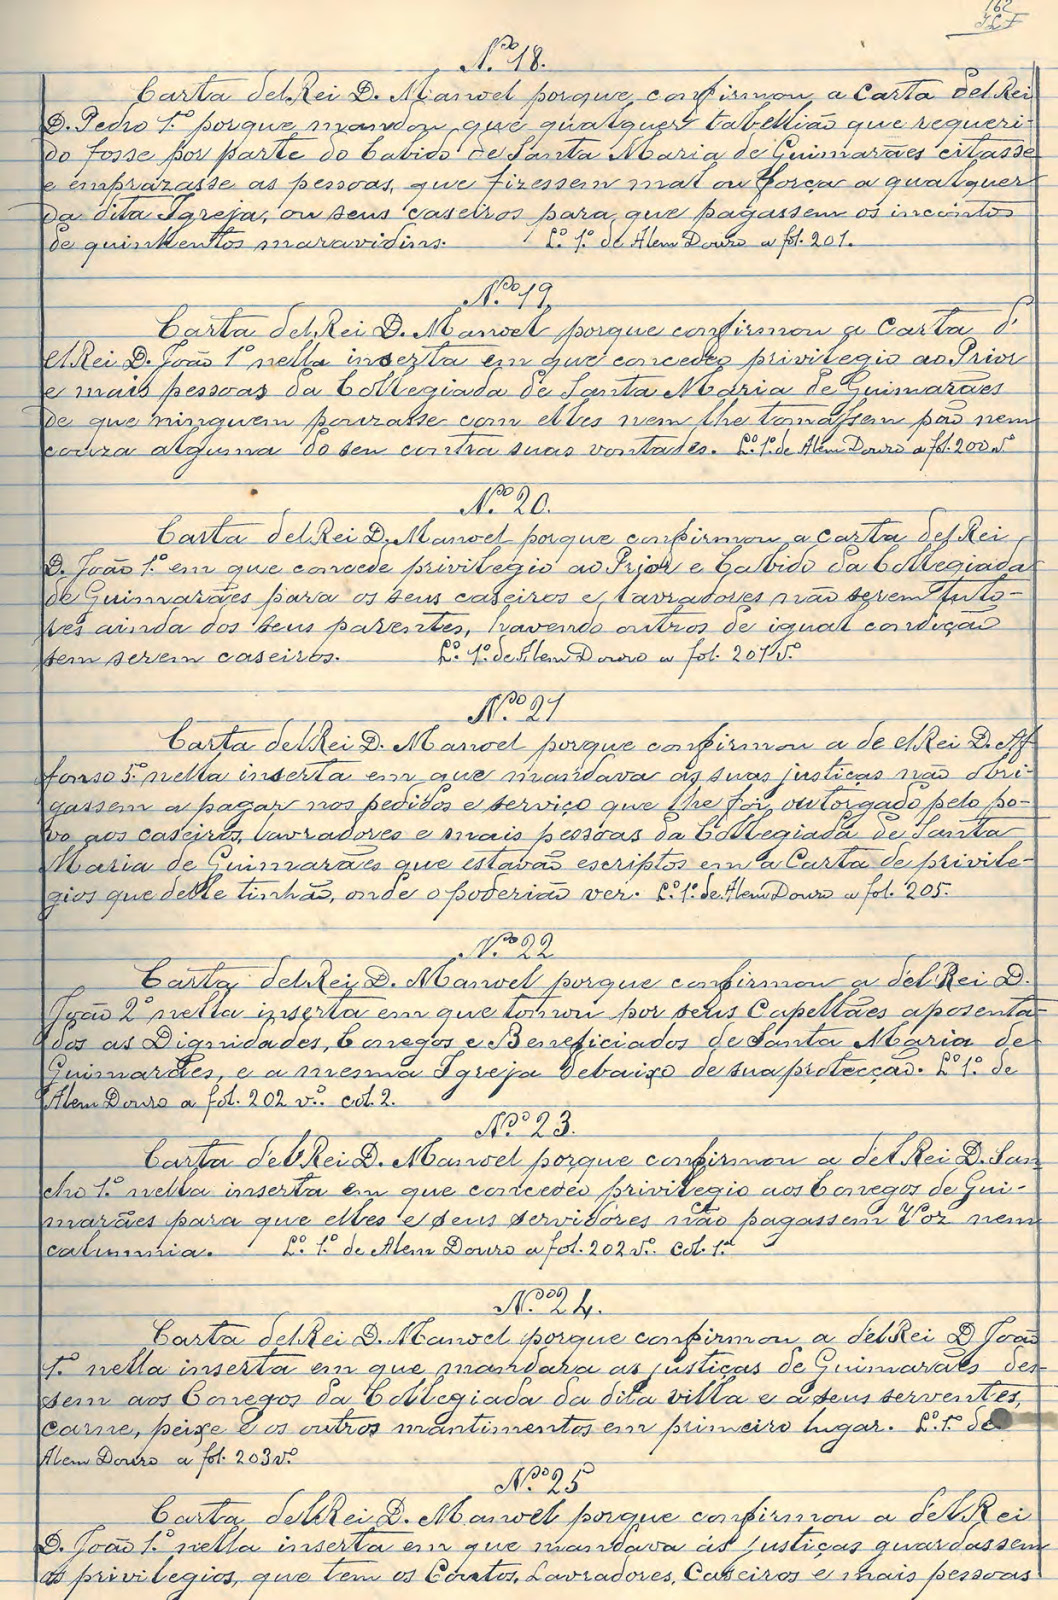 162
N.º 18.
Carta del Rei D. Manoel porque confirmou a Carta del Rei
D. Pedro 1.º porque mandou, que qualquer tabellião que requeri-
do fosse por parte do Cabido de Santa Maria de Guimarães citasse
e emprazasse as pessoas, que fizessem mal ou força a qualquer
da dita Igreja, ou seus caseiros para que pagassem os incoutos
de quinhentos maravidins. L.º 1.º de Alem Douro a fol. 201.
N.º 19
Carta del Rei D. Manoel porque confirmou a Carta d'
el Rei D. João 1.º nella inserta em que concedeo privilegio ao Prior
e mais pessoas da Collegiada de Santa Maria de Guimarães
de que ninguem pouzasse com elles nem lhe tomassem pão nem
couza alguma do seu contra suas vontades. L.º 1.º de Alem Douro a fol. 200 v.º
N.º 20.
Carta del Rei D. Manoel porque confirmou a carta del Rei
D. João 1.º em que concede privilegio ao Prior e Cabido da Collegiada
de Guimarães para os seus caseiros e lavradores não serem Tuto-
res ainda dos seus parentes, havendo outros de igual condição
sem serem caseiros. L.º 1.º de Alem Douro a fol. 201 v.º
N.º 21
Carta del Rei D. Manoel porque confirmou a de el Rei D. Aff
fonso 5.º nella inserta em que mandava ás suas justiças não obri-
gassem a pagar nos pedidos e serviço que lhe foi outorgado pelo po-
vo aos caseiros, lavradores e mais pessoas da Collegiada de Santa
Maria de Guimarães que estavão escriptos em a Carta de privile-
gios que delle tinhão, onde o poderião ver. L.º 1.º de Alem Douro a fol. 205.
N.º 22
Carta del Rei D. Manoel porque confirmou a del Rei D.
João 2.º nella inserta em que tomou por seus Capellães aposenta-
dos as Dignidades, Conegos e Beneficiados de Santa Maria de
Guimarães, e a mesma Igreja debaixo de sua protecção. L.º 1.º de
Alem Douro a fol. 202 v.º col. 2.
N.º 23.
Carta d'el Rei D. Manoel porque confirmou a del Rei D. San
cho 1.º nella inserta em que concedeo privilegio aos Conegos de Gui-
marães para que elles e seus servidores não pagassem Voz nem
calumnia. L.º 1.º de Alem Douro a fol. 202 v.º col. 1.ª
N.º 24.
Carta del Rei D. Manoel porque confirmou a d'el Rei D João
1.º nella inserta em que mandara as justiças de Guimarães des-
sem aos Conegos da Collegiada da dita villa e a seus serventes,
carne, peixe e os outros mantimentos em primeiro lugar. L.º 1.º de
Alem Douro a fol. 203 v.º
N.º 25
Carta del Rei D. Manoel porque confirmou a d'el Rei
D. João 1.º nella inserta em que mandava ás justiças guardassem
os privilegios, que tem os Coutos, Lavradores, Caseiros e mais pessoas